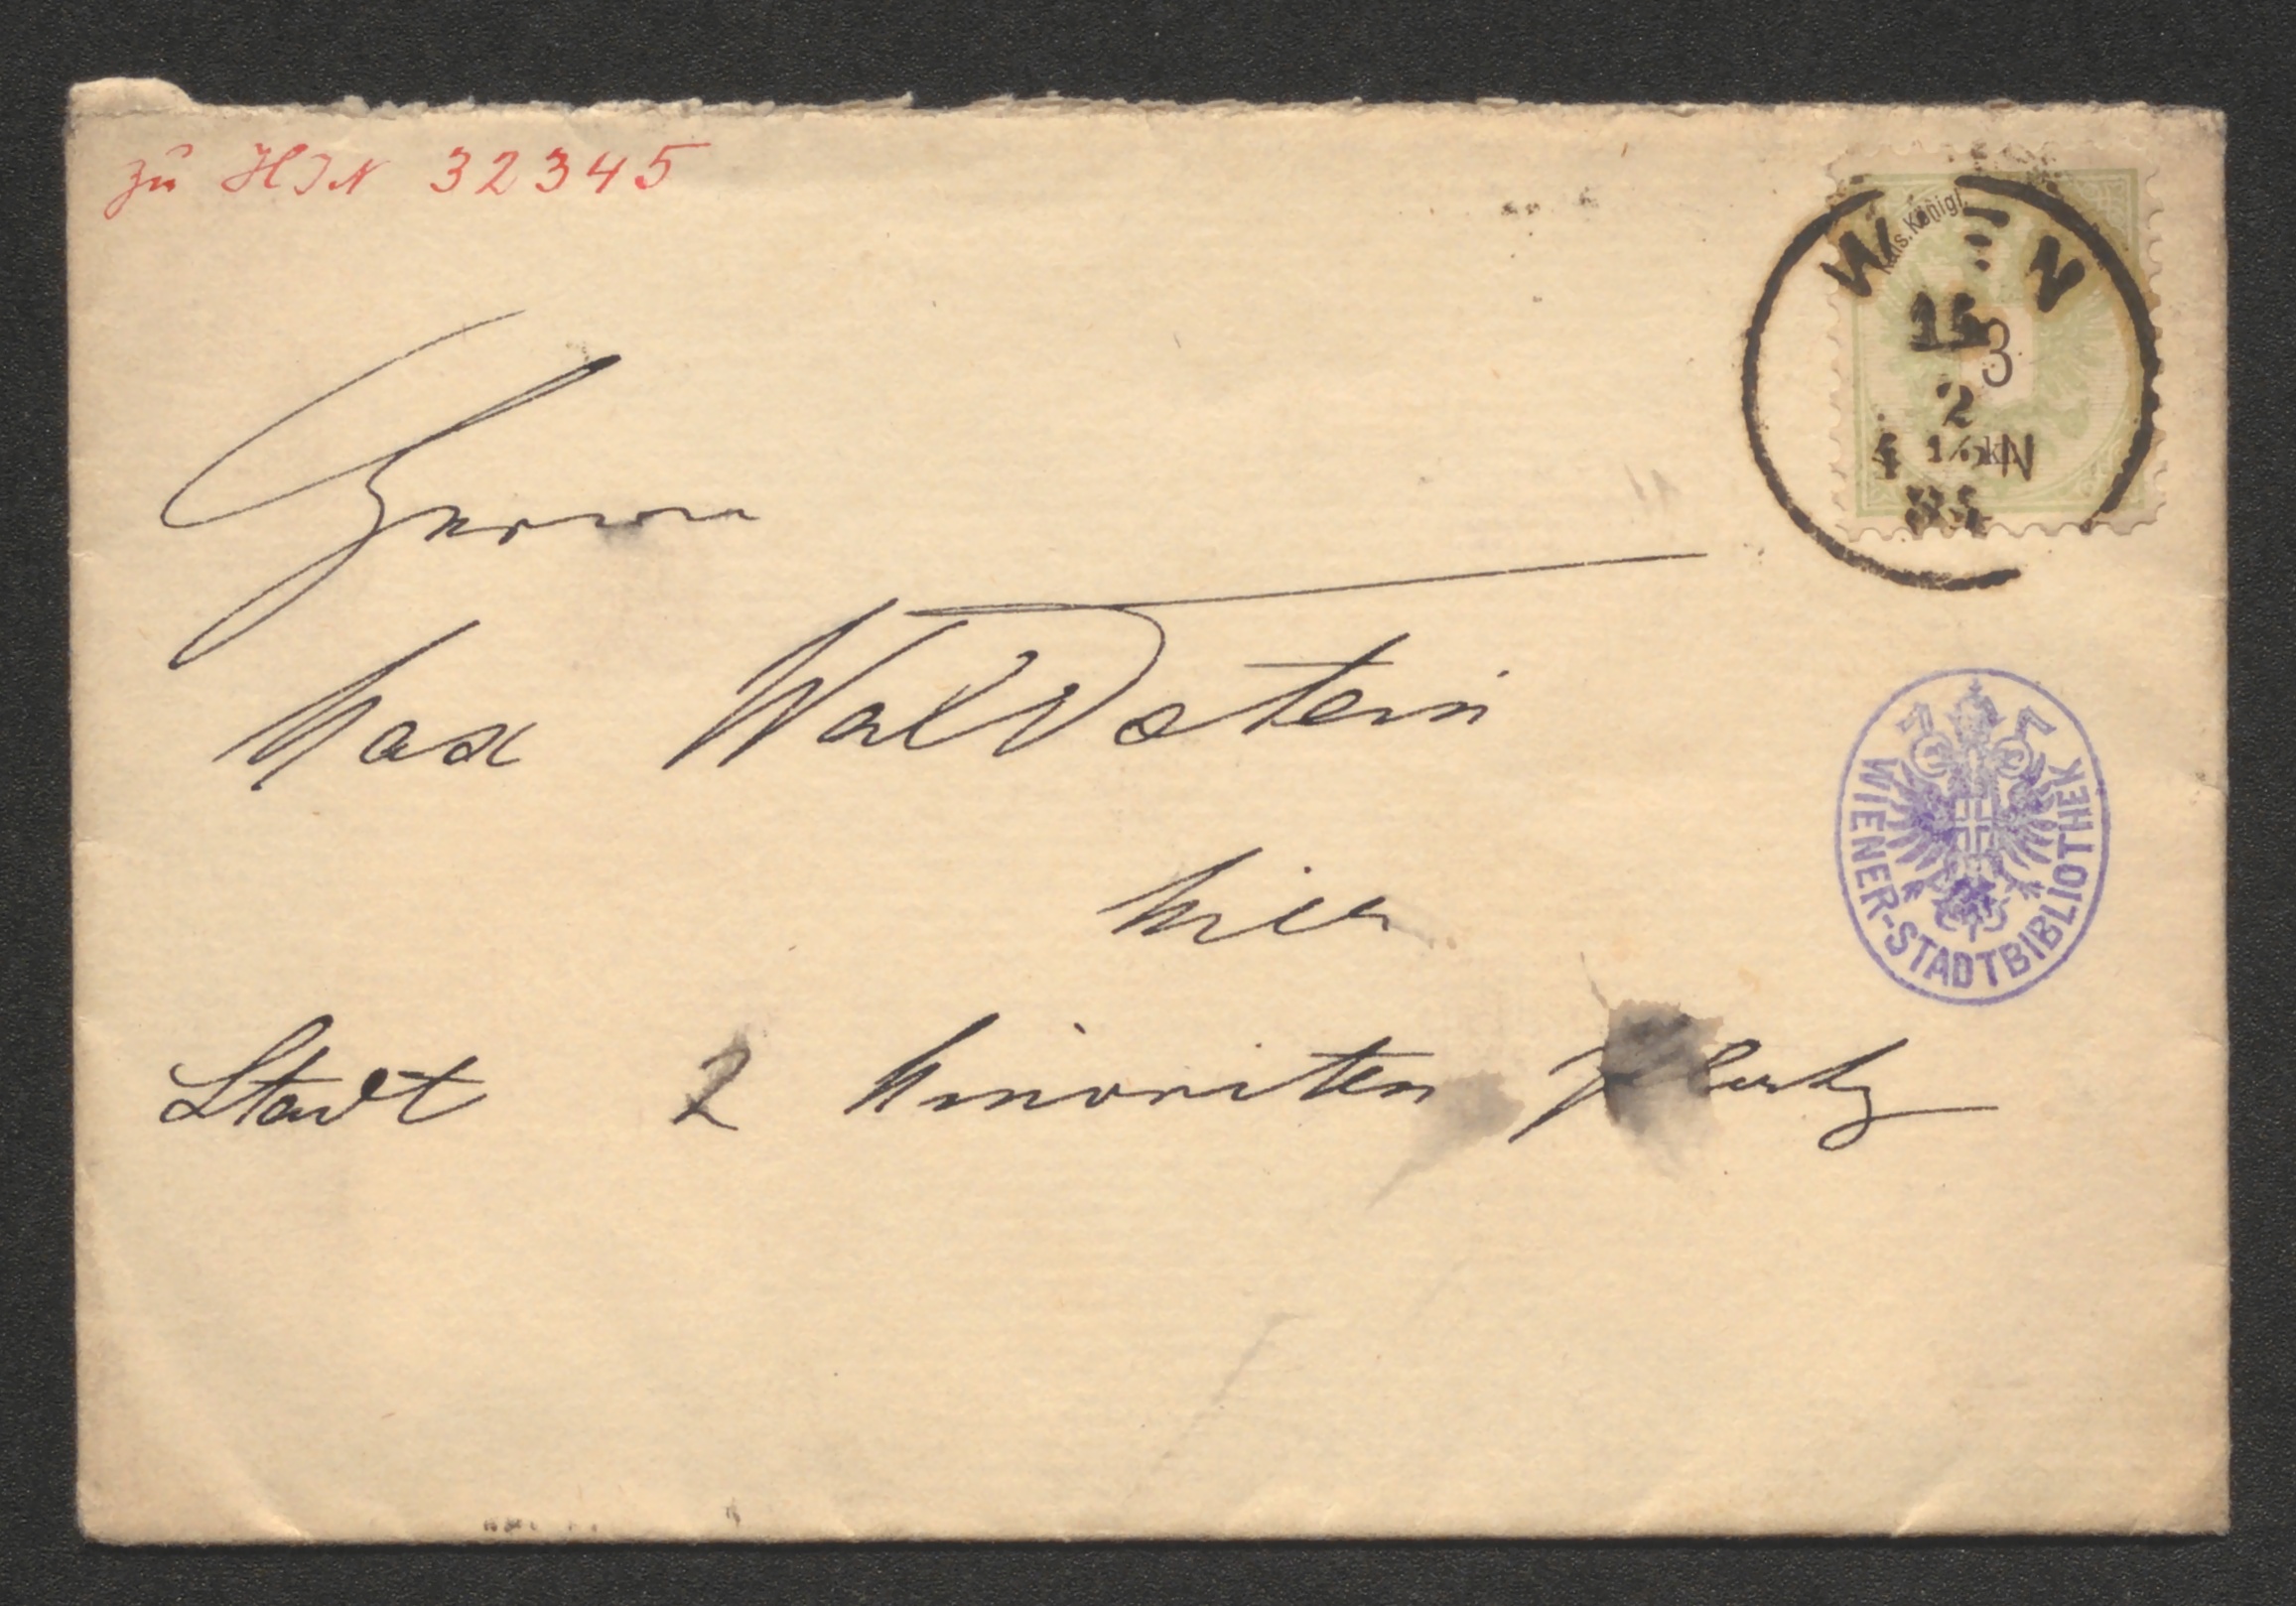 zu HIN 32345
Kais. Königl.
3
WIEN
2
Herrn
Max Waldstein
hier
Stadt 2 Minoriten Platz
WIENER-STADTBIBLIOTHEK